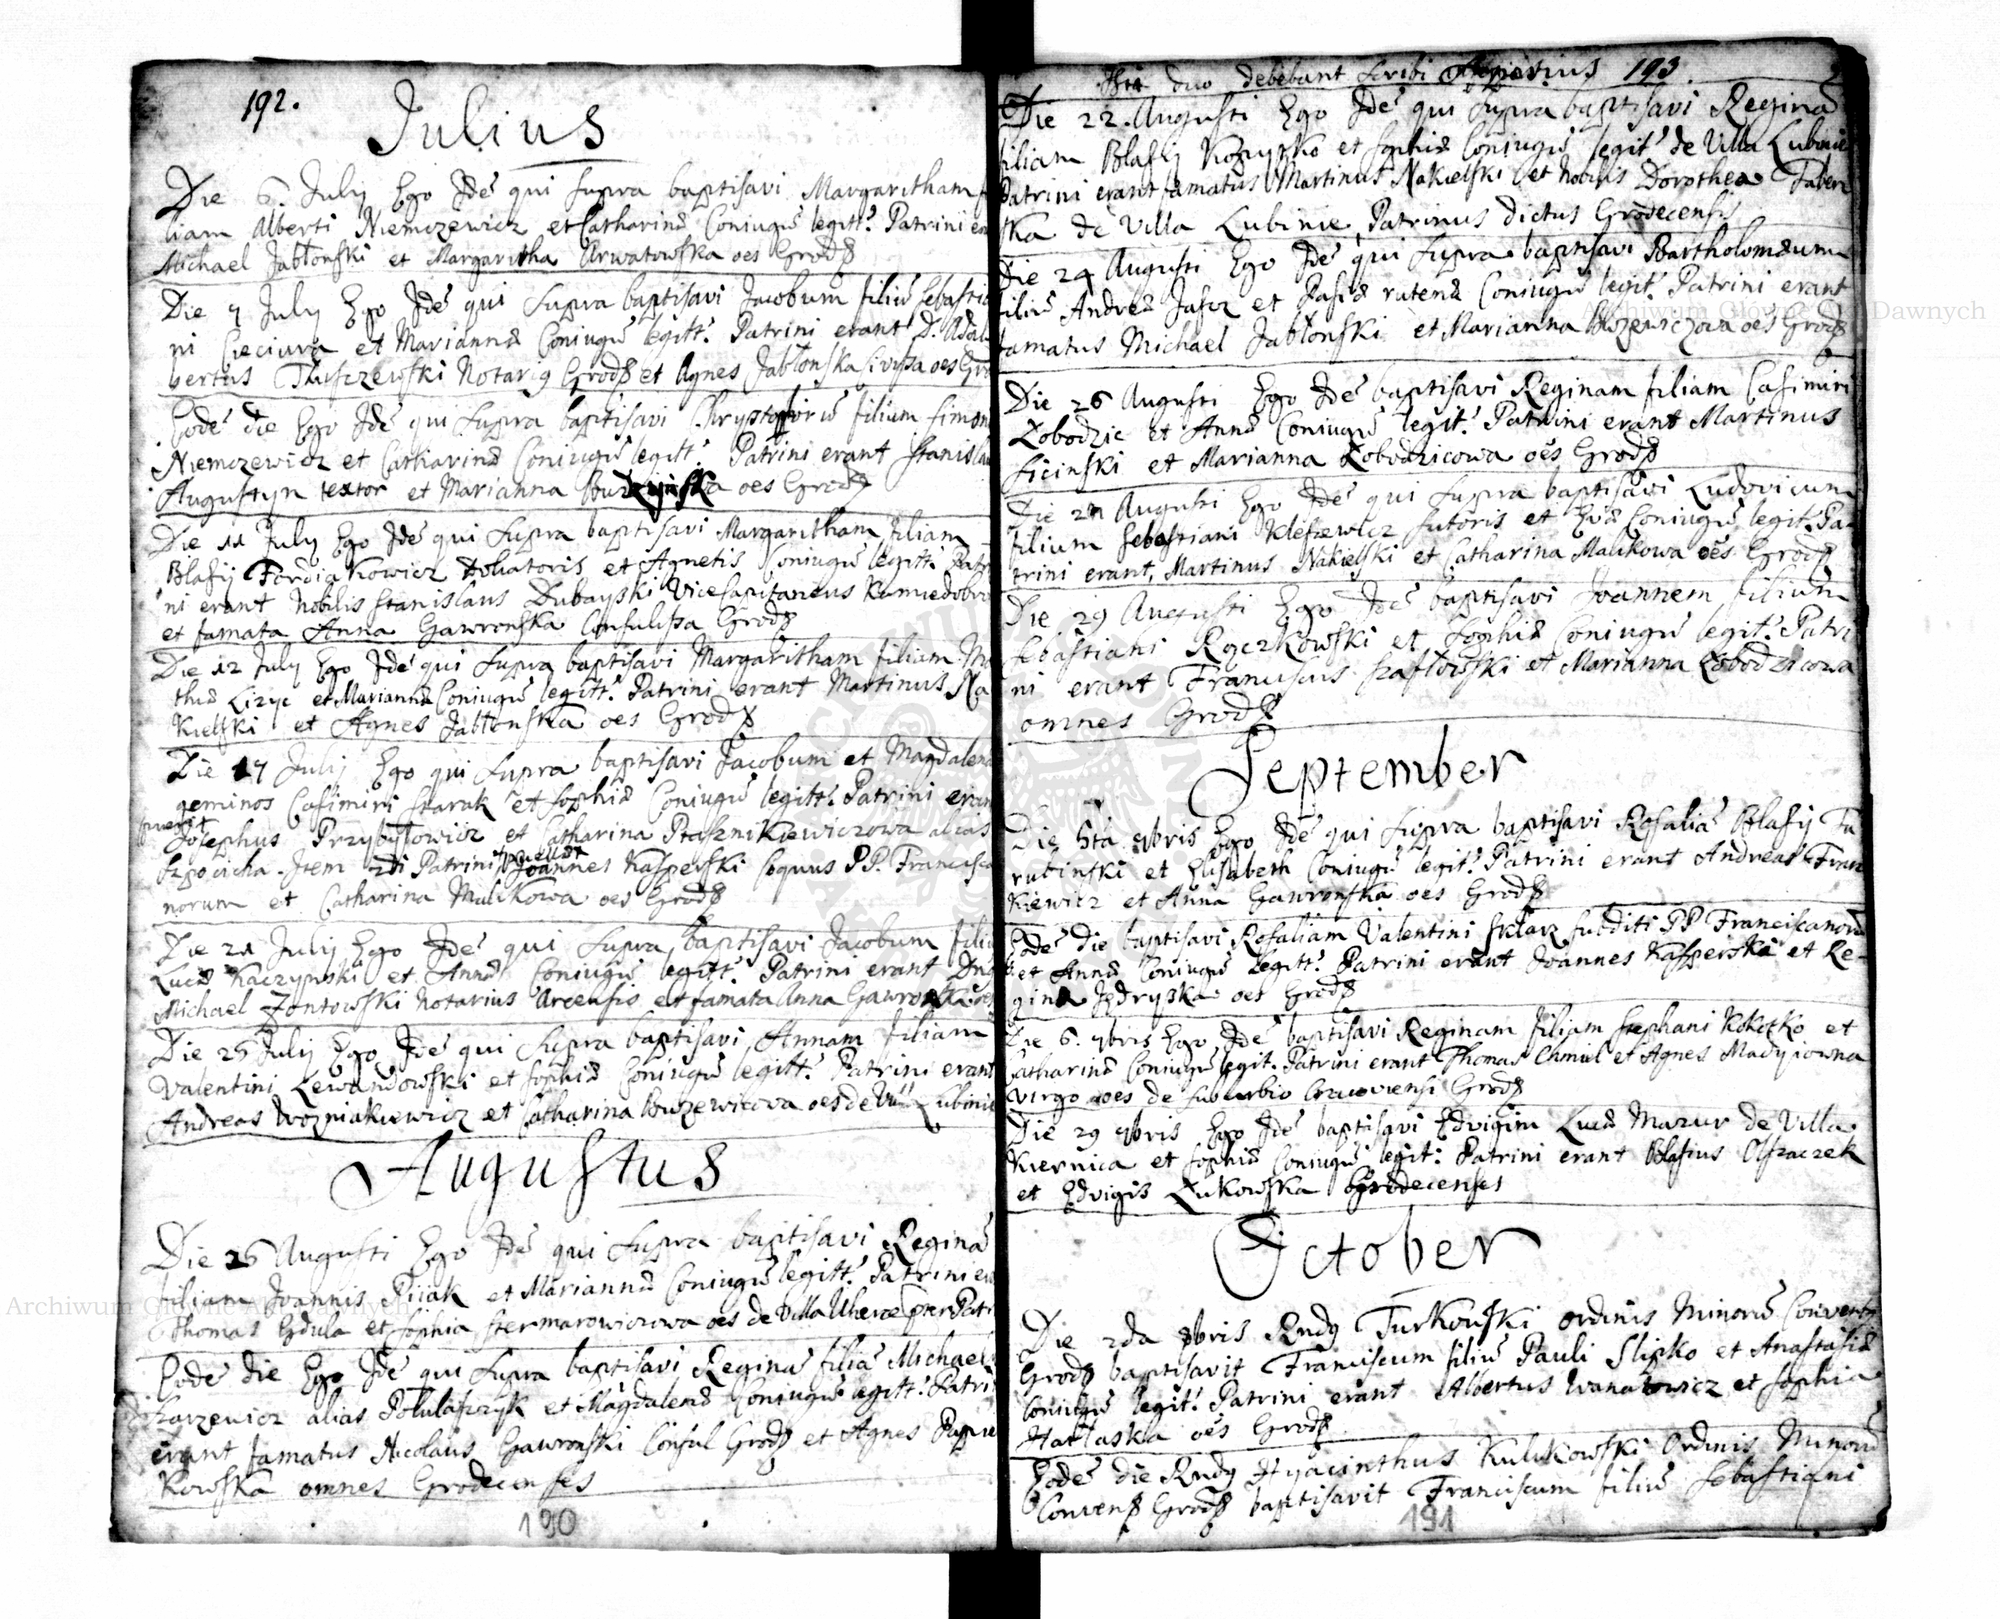 192.
Julius
Die 6. July Ego Idē qui supra baptisavi Margaritham fi
liam Alberti Niemczewicz et Catharinæ Coniugū legitt. Patrini erā
Michael Jabłonski et Margaritha Arwatowska oēs Grod
Die 7 July Ego Idē qui supra baptisavi Jacobum filiū Sebastia
ni Cieciura et Mariannæ Coniugū legitt. Patrini erant D. Adal
bertus Tłuszczewski Notarig Grod et Agnes Jabłonska oēs Gro
Eodē die Ego Idē qui supra baptisavi Chrystophorū filium Simon
Niemczewicz et Catharinæ Coniugū legitt. Patrini erant Stanislau
Augustyn textor et Marianna oēs Grod
Die 11 July Ego Idē qui supra baptisavi Margaritham filiam
Blasij Doliatoris et Agnetis Coniugū legitt. Patri
ni erant Nobilis Stanislaus Dubayski ViceCapitaneus Kamiedobro
et famata Anna Gawronska Consulissa Grod
Die 12 July Ego Idē qui supra baptisavi Margaritham filiam
thiæ Lizyc et Mariannæ Coniugū legitt. Patrini erant Martinus Na
kielski et Agnes Jabłonska oēs Grod
Die 17 July Ego qui supra baptisavi Jacobum et Magdalena
geminos Casimiri Skarak et Sophiæ Coniugū legitt. Patrini eran
Josephus Przybyłowicz et Catharina Ptasznikiewiczowa alias
Item 2di Patrini Joannes Kasperski Coquus P.P. Francisca
norum et Catharina Mulikowa oēs Grod
Die 21 July Ego Idē qui supra baptisavi Jacobum filiū
Lucæ Kaczynski et Annæ Coniugū legitt. Patrini erant Dng
Michael Zontowski Notarius Arcensis et famata Anna Gawronska oēs
Die 25 July Ego Idē qui supra baptisavi Annam filiam
Valentini Lewandowski et Sophiæ Coniugū legitt. Patrini erant
Andreas Wozniakiewicz et Catharina Buzewicova oēs de Villa Lubinie
Augustus
Die 26 Augusti Ego Idē qui supra baptisavi Reginā
filiam Joannis Piiak et Mariannæ Coniugū legitt. Patrini erā
Thomas Gdula et Sophia oēs de Villa Uherce
Eodē die Ego Idē qui supra baptisavi Reginā filiā Michaeli
alias et Magdalenæ Coniugū legitt. Patri
erant famatus Nicolaus Gawronski Consul Grod et Agnes Papie
kowska omnes Grodecenses
190
duo debebant scribi 193.
Die 22. Augusti Ego Idē qui supra baptisavi Reginā
filiam Blasij et Sophiæ Coniugū legitt. de Villa Lubinie
Patrini erant famatus Martinus Nakielski et Nobilis Dorothea
ska de Villa Lubinie, Patrinus dictus Grodecensis
Die 24 Augusti Ego Idē qui supra baptisavi Bartholomæum
filiū Andreæ Jasez et rutenæ Coniugū legit. Patrini erant
famatus Michael Jabłonski et Marianna oēs Grod
Die 26 Augusti Ego Idē baptisavi Reginam filiam Casimiri
Łobodzic et Annæ Coniugū legit. Patrini erant Martinus
Sicinski et Marianna Łobodzicowa oēs Grod
Die 27 Augusti Ego Idē qui supra baptisavi Ludovicum
filium Sebastiani sutoris et Evæ Coniugū legit. Pa-
trini erant, Martinus Nakielski et Catharina Malikowa oēs Grod
Die 29 Augusti Ego Idē baptisavi Joannem filium
Sebastiani Roczkowski et Sophiæ Coniugū legit. Patri
ni erant Franciscus Szafłowski et Marianna Łobodzicowa
omnes Grod
September
Die 5ta 7bris Ego Idē qui supra baptisavi Rosaliā Blasij Ja
rubinski et Elisabeth Coniugū legit. Patrini erant Andreas Fran
kiewicz et Anna Gawronska oēs Grod
Eodē die baptisavi Rosaliam Valentini Szklarz subditi PP Franciscanorū
et Annæ Coniugū legitt. Patrini erant Joannes Kasperski et Re-
gina Jędryska oēs Grod
Die 6. 7bris Ego Idē baptisavi Reginam filiam Stephani Kokotko et
Catharinæ Coniugū legit. Patrini erant Thomas Chmiel et Agnes
virgo oēs de suburbio Cracoviensi Grod
Die 29 7bris Ego Idē baptisavi Edvigim Lucæ Mazur de Villa
Kiernica et Sophiæ Coniugū legit: Patrini erant Blasius Olszaczek
et Edvigis Łukowska Grodecenses
October
Die 2da 8bris Rndg Turkowski ordinis Minorū Convent
Grod baptisavit Franciscum filiū Pauli Slipko et Anastasiæ
Coniugū legit. Patrini erant Albertus Wanatowicz et Sophia
oēs Grod
Eodē die Rndg Hyacinthus Kulikowski Ordinis Minorū
Conven Grod baptisavit Franciscum filiū Sebastiani
191
Archiwum Główne Akt Dawnych
Archiwum Główne Akt Dawnych